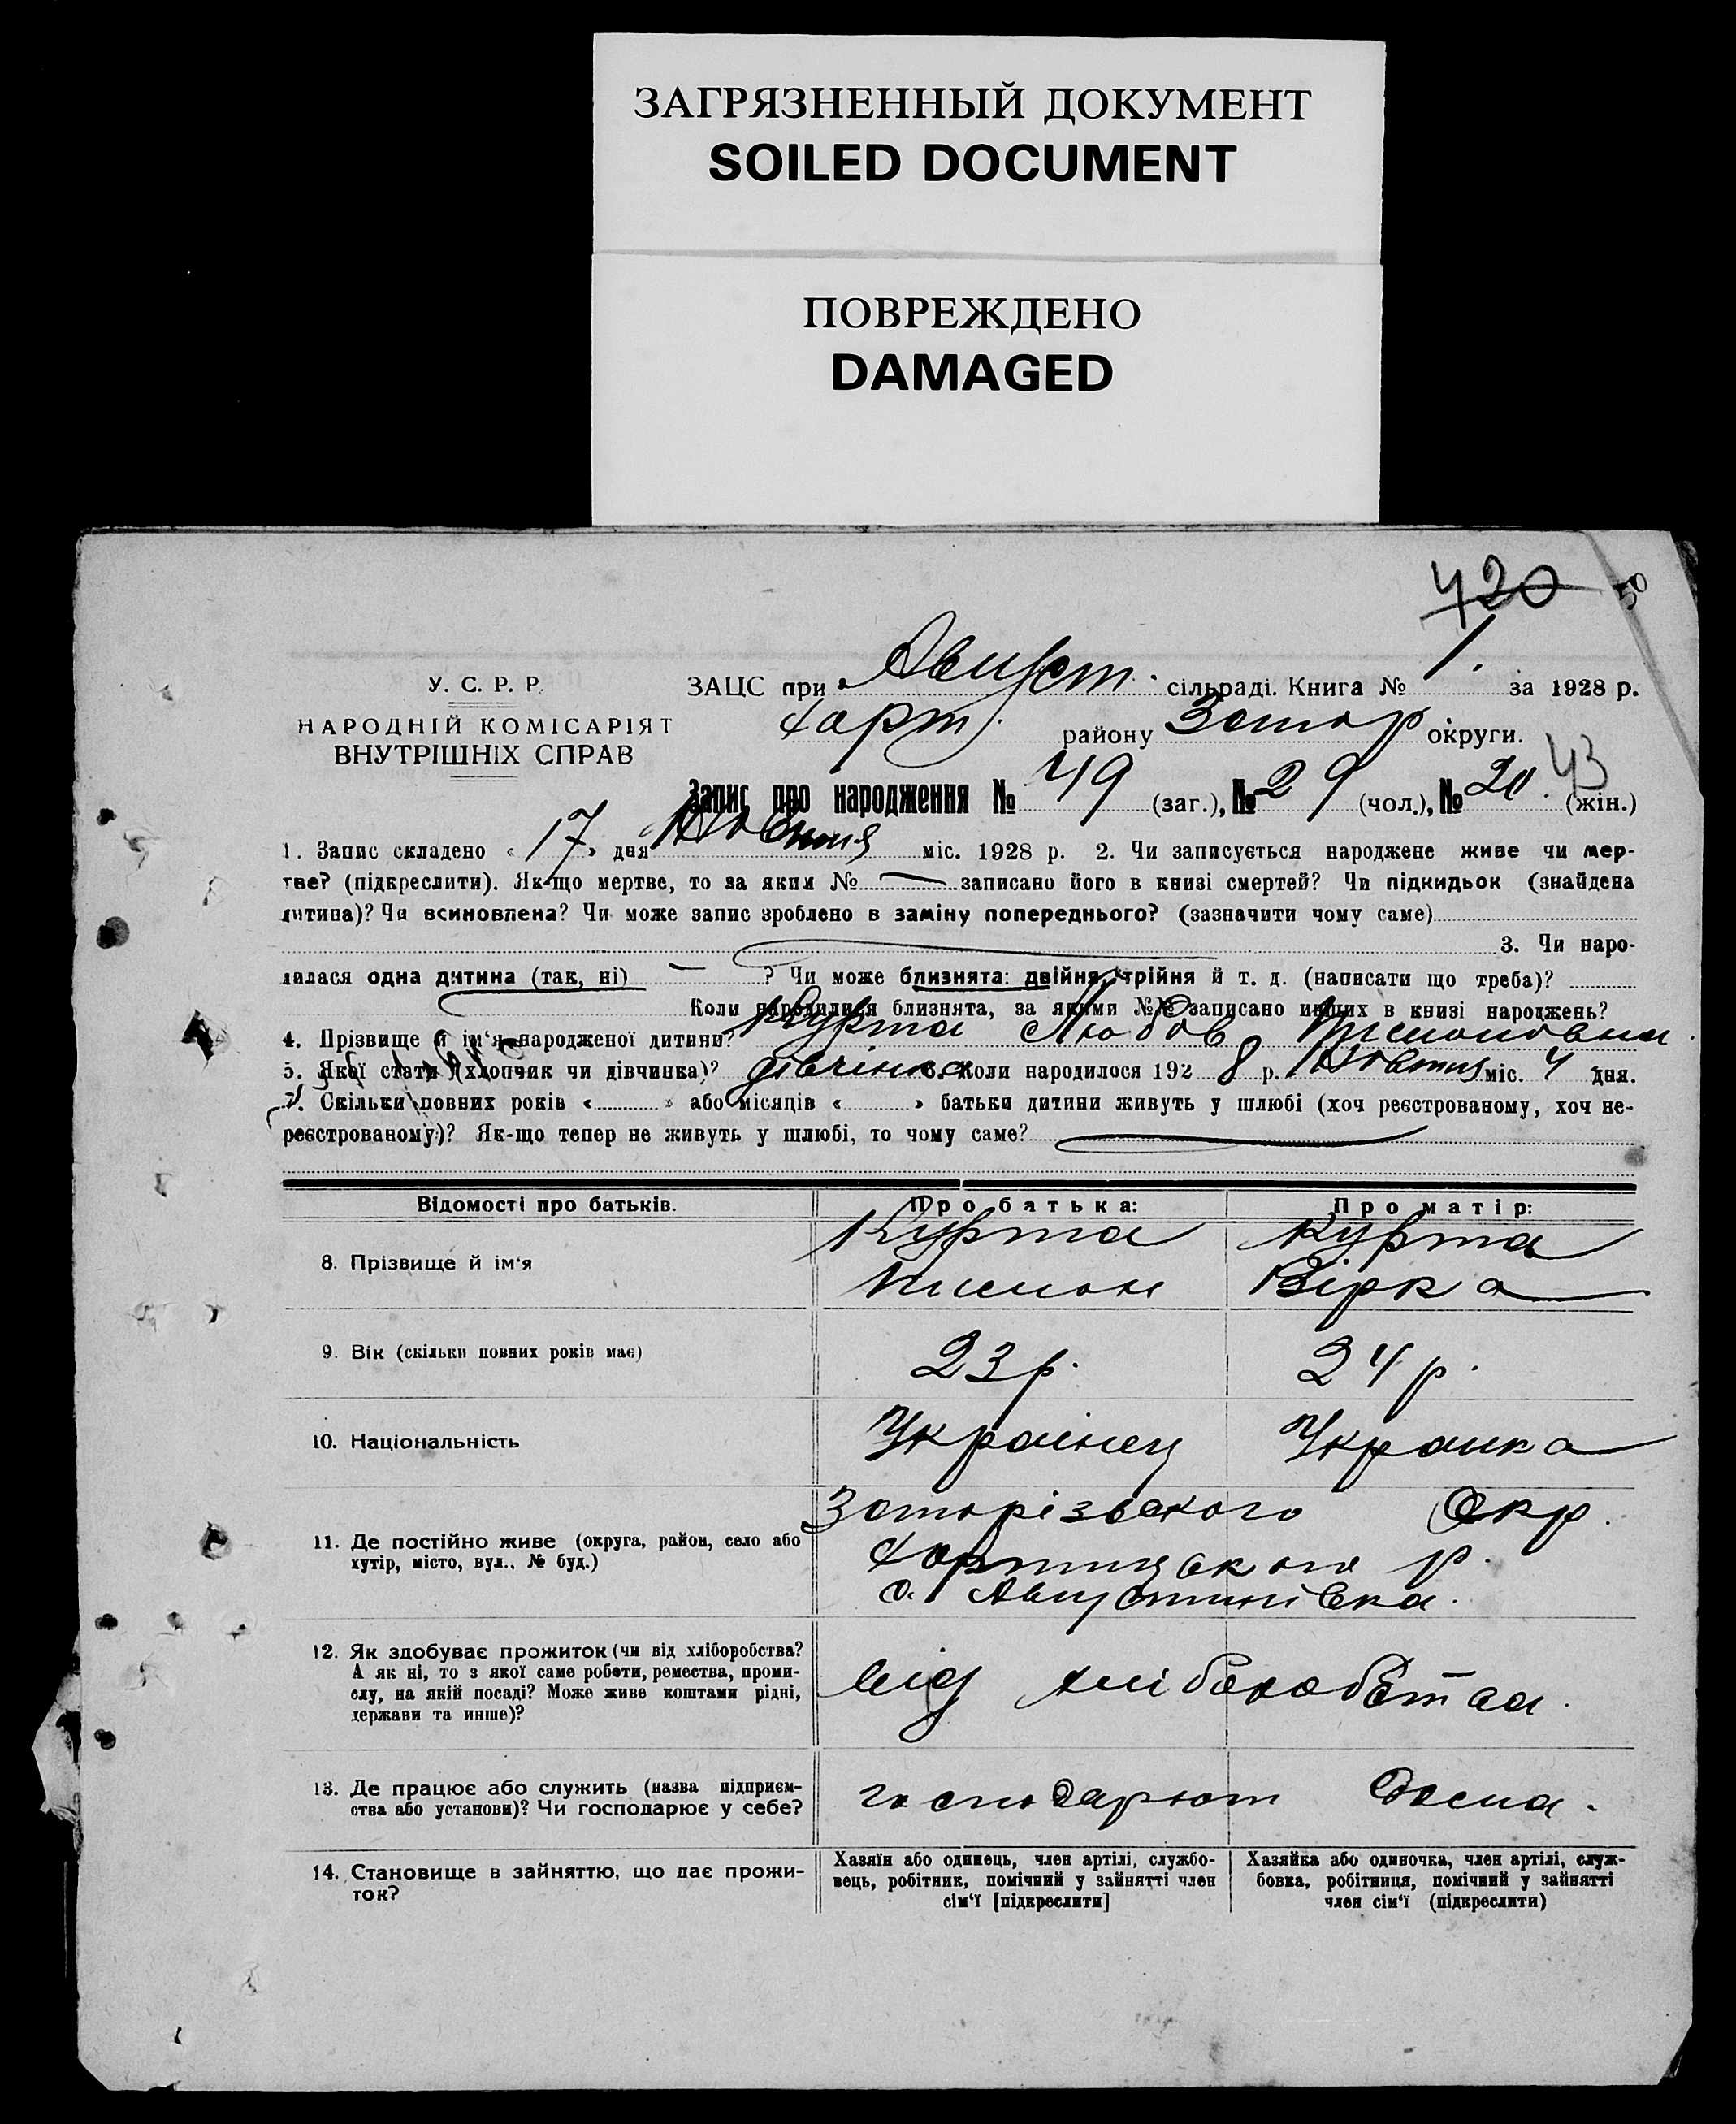 ЗАГРЯЗНЕННЫЙ ДОКУМЕНТ
SOILED DOCUMENT
ПОВРЕЖДЕНО
DAMAGED
420 50
У. С. Р. Р.
НАРОДНІЙ КОМІСАРІЯТ
ВНУТРІШНІХ СПРАВ
ЗАЦС при Август. сільраді. Книга № 1. за 1928 р.
Хорт. району Запор. округи.
43
Запис про народження № 49 (заг.), № 29 (чол.), № 20. (жін.)
1. Запис складено « 17 » дня Жовтня міс. 1928 р. 2. Чи записується народжене живе чи мер-
тве? (підкреслити). Як-що мертве, то за яким № — записано його в книзі смертей? Чи підкидьок (знайдена
дитина)? Чи всиновлена? Чи може запис зроблено в заміну попереднього? (зазначити чому саме)
3. Чи наро-
дилася одна дитина (так, ні) — ? Чи може близнята: двійня, трійня й т. д. (написати що треба)?
Коли народилися близнята, за якими №№ записано инших в книзі народжень?
4. Прізвище й ім'я народженої дитини? Курта Любов
5. Якої статі (хлопчик чи дівчинка)? дівчінка 6. Коли народилося 192 8 р. Жовтня міс. 4 дня.
7. Скільки повних років « » або місяців « » батьки дитини живуть у шлюбі (хоч реєстрованому, хоч не-
реєстрованому)? Як-що тепер не живуть у шлюбі, то чому саме?
Відомості про батьків. Про батька: Про матір:
8. Прізвище й ім'я Курта Курта
Вірка
9. Вік (скільки повних років має) 23 р. 24 р.
10. Національність Українец Украинка
11. Де постійно живе (округа, район, село або
хутір, місто, вул., № буд.)
Запорізського Окр.
Хортицького р.
с. Августинівка.
12. Як здобуває прожиток (чи від хліборобства?
А як ні, то з якої саме роботи, ремества, проми-
слу, на якій посаді? Може живе коштами рідні,
держави та инше)?
від хліборобства.
13. Де працює або служить (назва підприєм-
ства або установи)? Чи господарює у себе?
господарюют дома.
14. Становище в зайняттю, що дає прожи-
ток?
Хазяїн або одинець, член артілі, службо-
вець, робітник, помічний у зайнятті член
сім'ї [підкреслити]
Хазяйка або одиночка, член артілі, служ-
бовка, робітниця, помічний у зайнятті
член сім'ї (підкреслити)